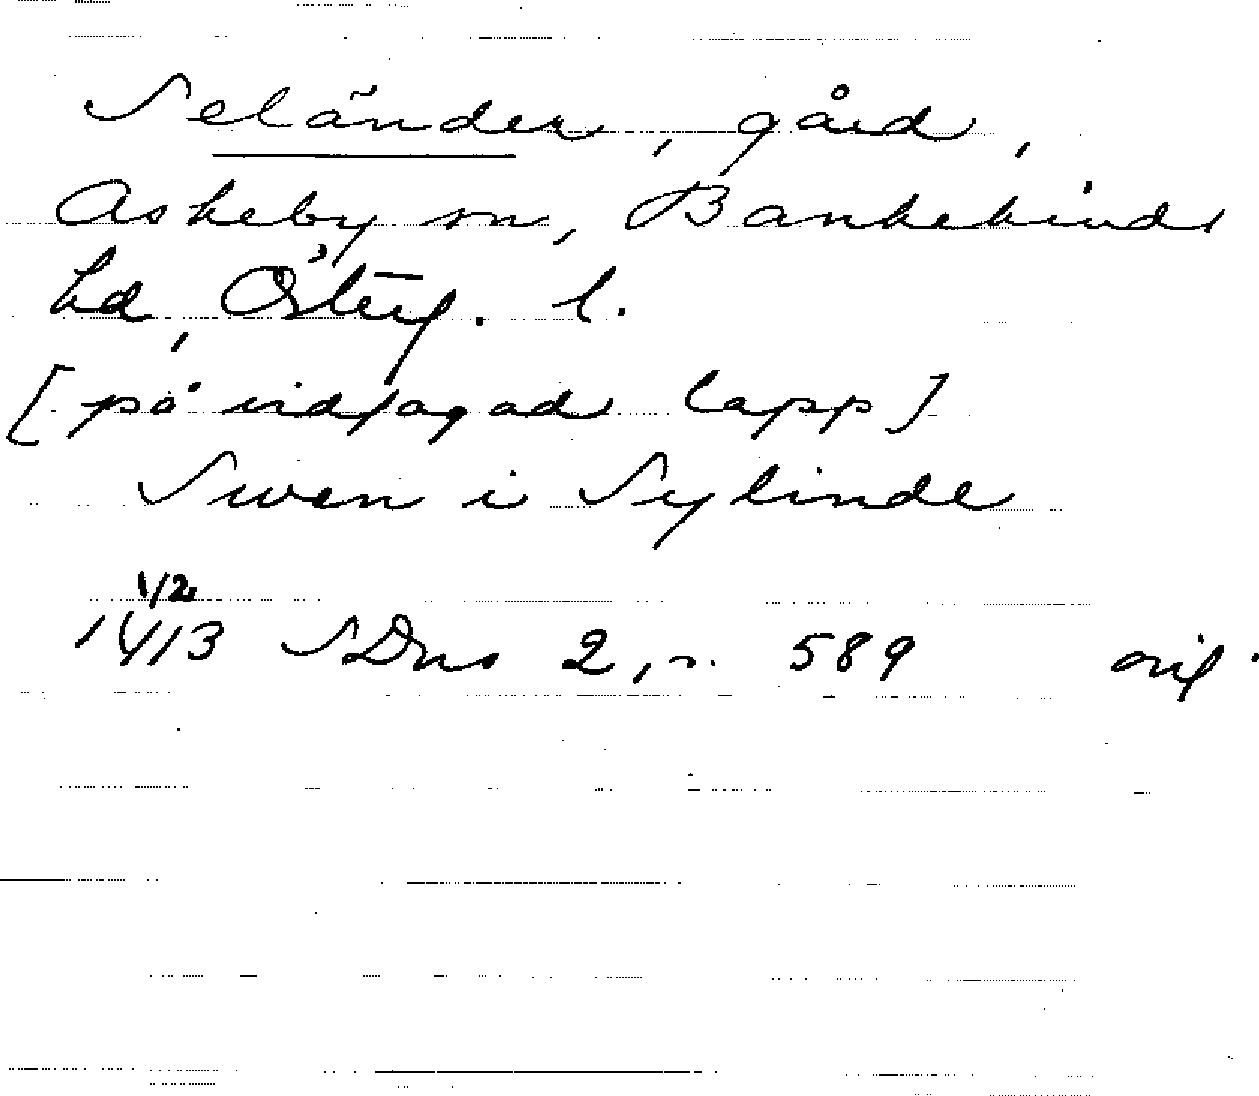 Seländer, gård,
Askeby sn, Bankekinds
hd, Österg. l.
[på vidfogad lapp]
Swen i Sylinde
1/2
1413 SDns 2, n. 589 orig.